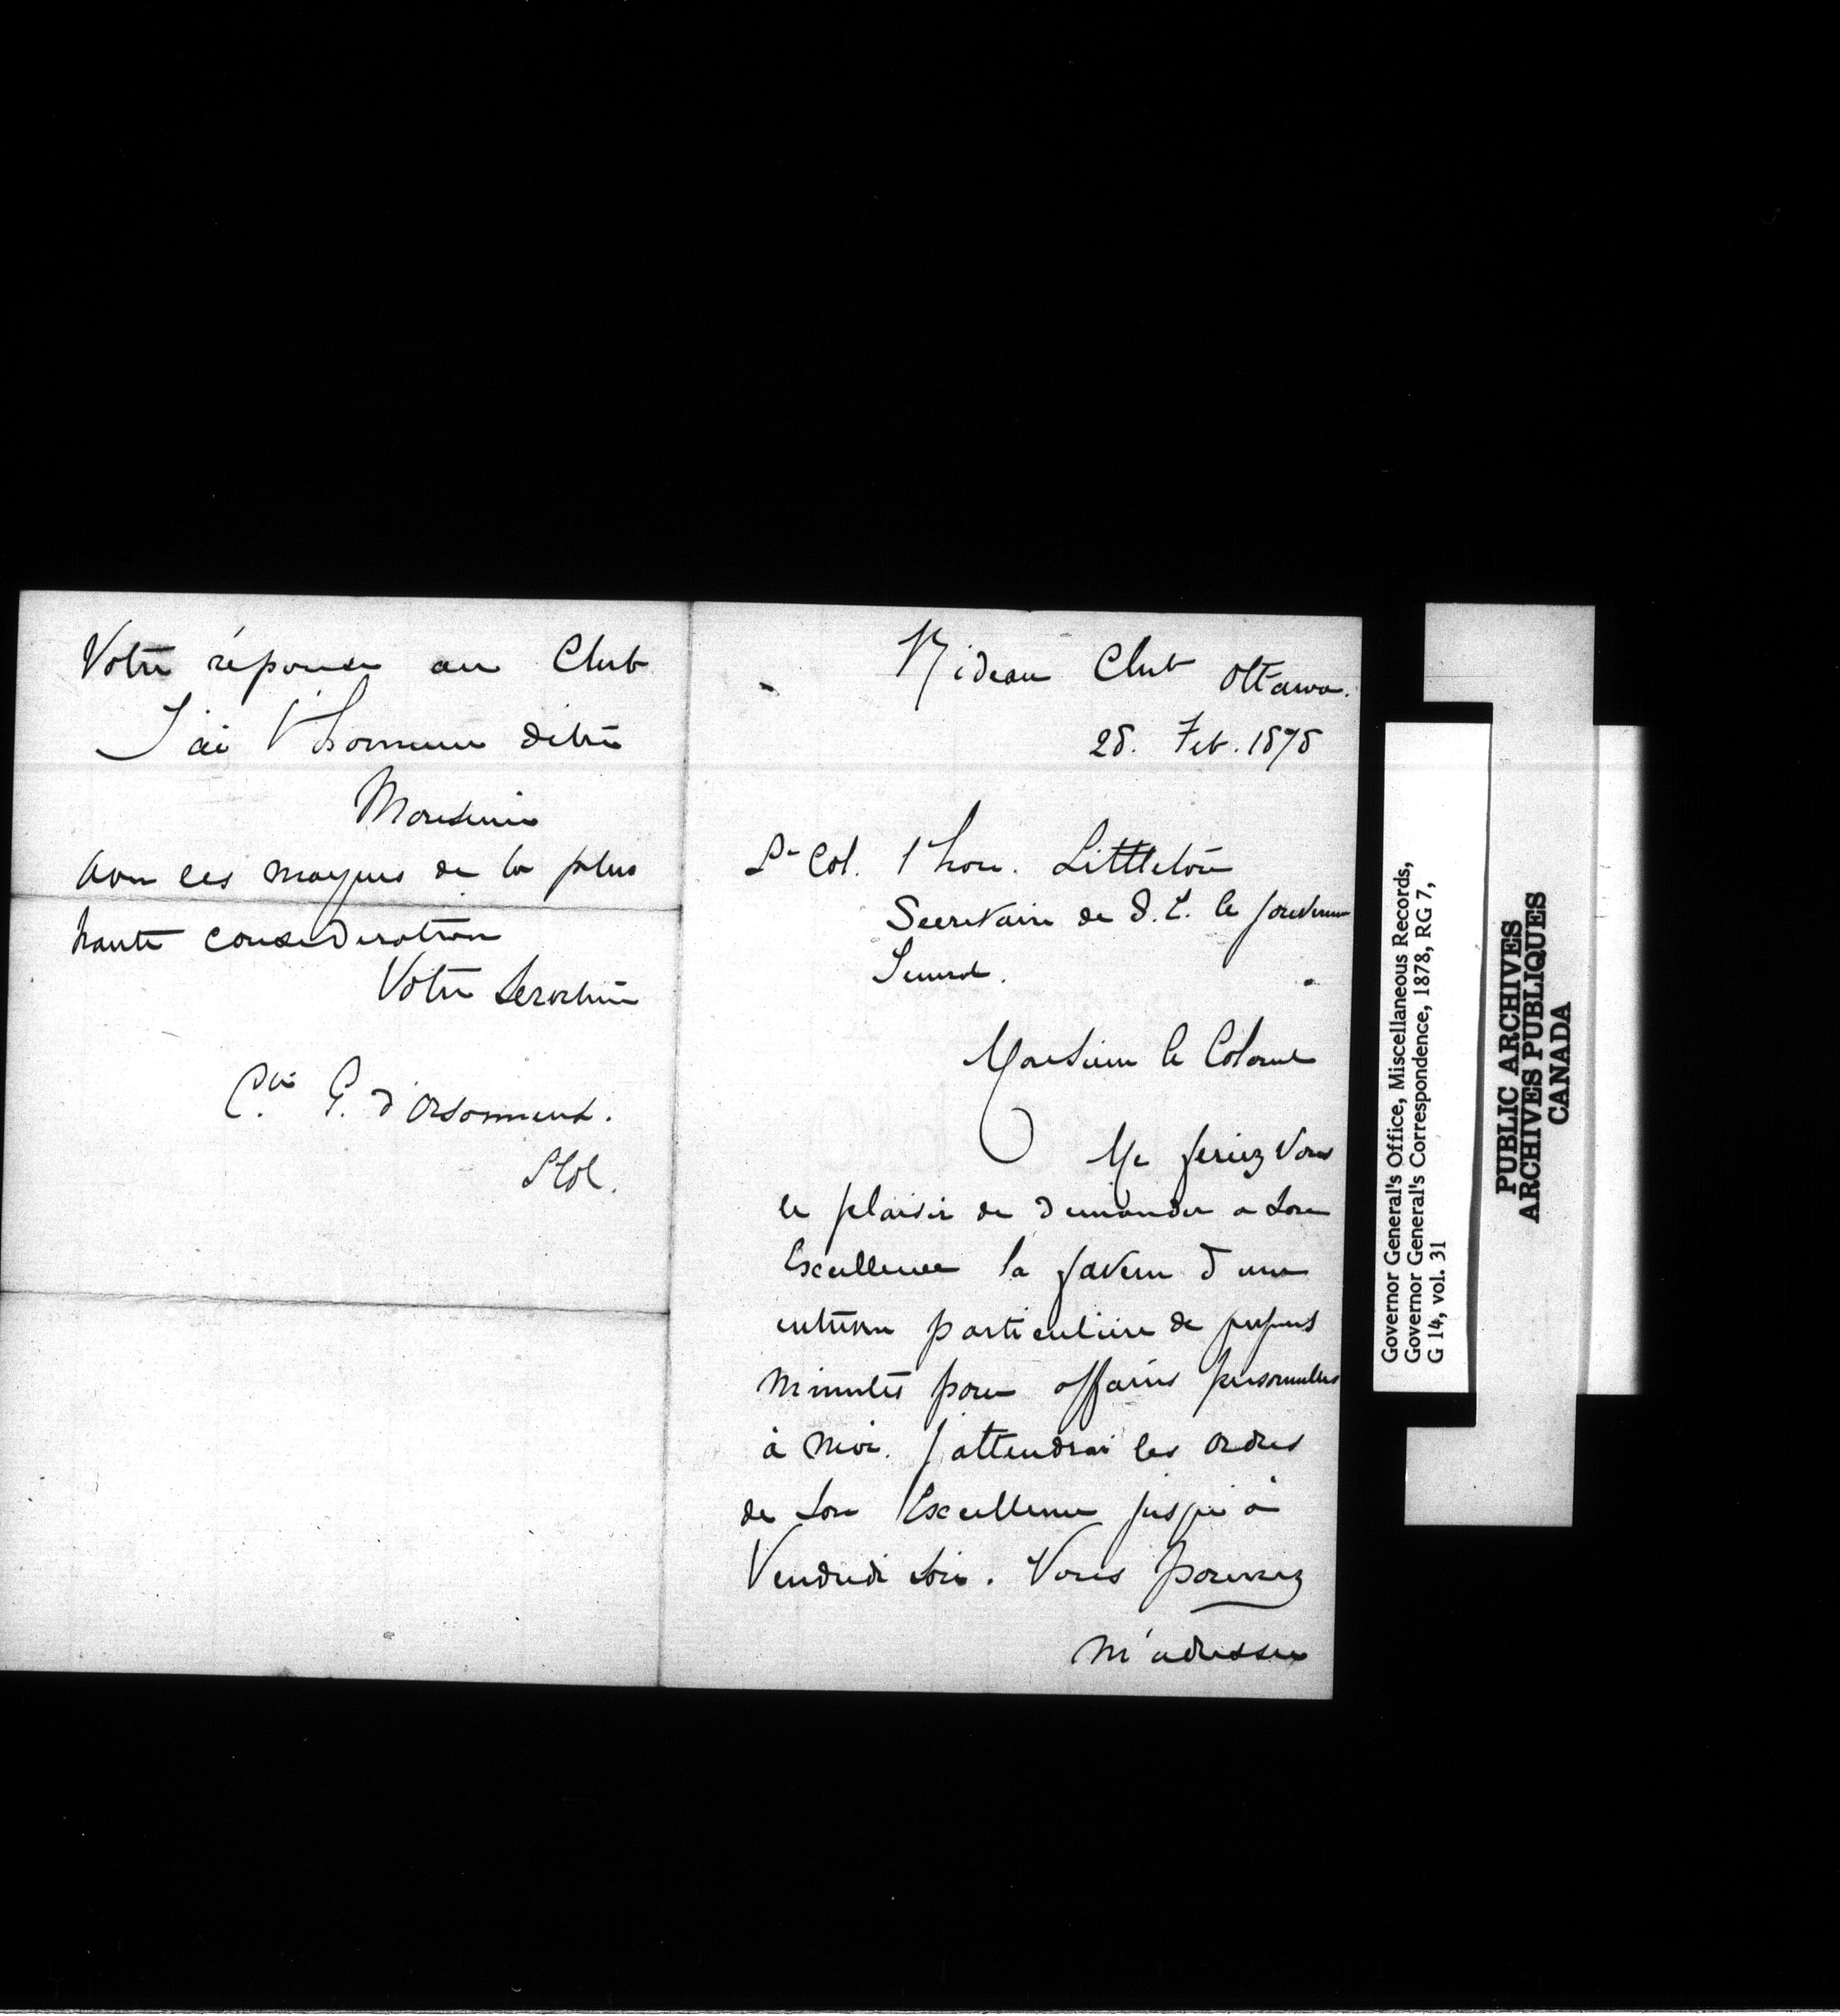 Rideau Club Ottawa.
28. Feb. 1878
Lt Col. l'hon. Littleton
Secretaire de S. E. le Gouverneur
General.
Monsieur le Colonel
Me feriez Vous
le plaisir de demander a Son
Excellence la faveur d'une
entrevue particuliere de quelques
minutes pour affaires personnelles
à moi. J'attendrai les ordres
de Son Excellence jusqu'à
Vendredi soir. Vous pouvez
m'adresser
Votre réponse au Club
J'ai l'honneur d'etre
Monsieur
avec les marques de la plus
haute consideration
Votre Serviteur
Cte G. d'Orsonnens.
Lt Col.
Governor General's Office, Miscellaneous Records,
Governor General's Correspondence, 1878, RG 7,
G 14, vol. 31
PUBLIC ARCHIVES
ARCHIVES PUBLIQUES
CANADA